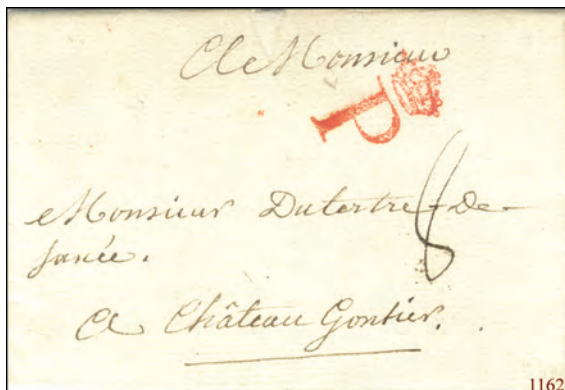 A Monsieur
P
Monsieur Dutertre de
8
sancé.
A Château Gontier.
1162